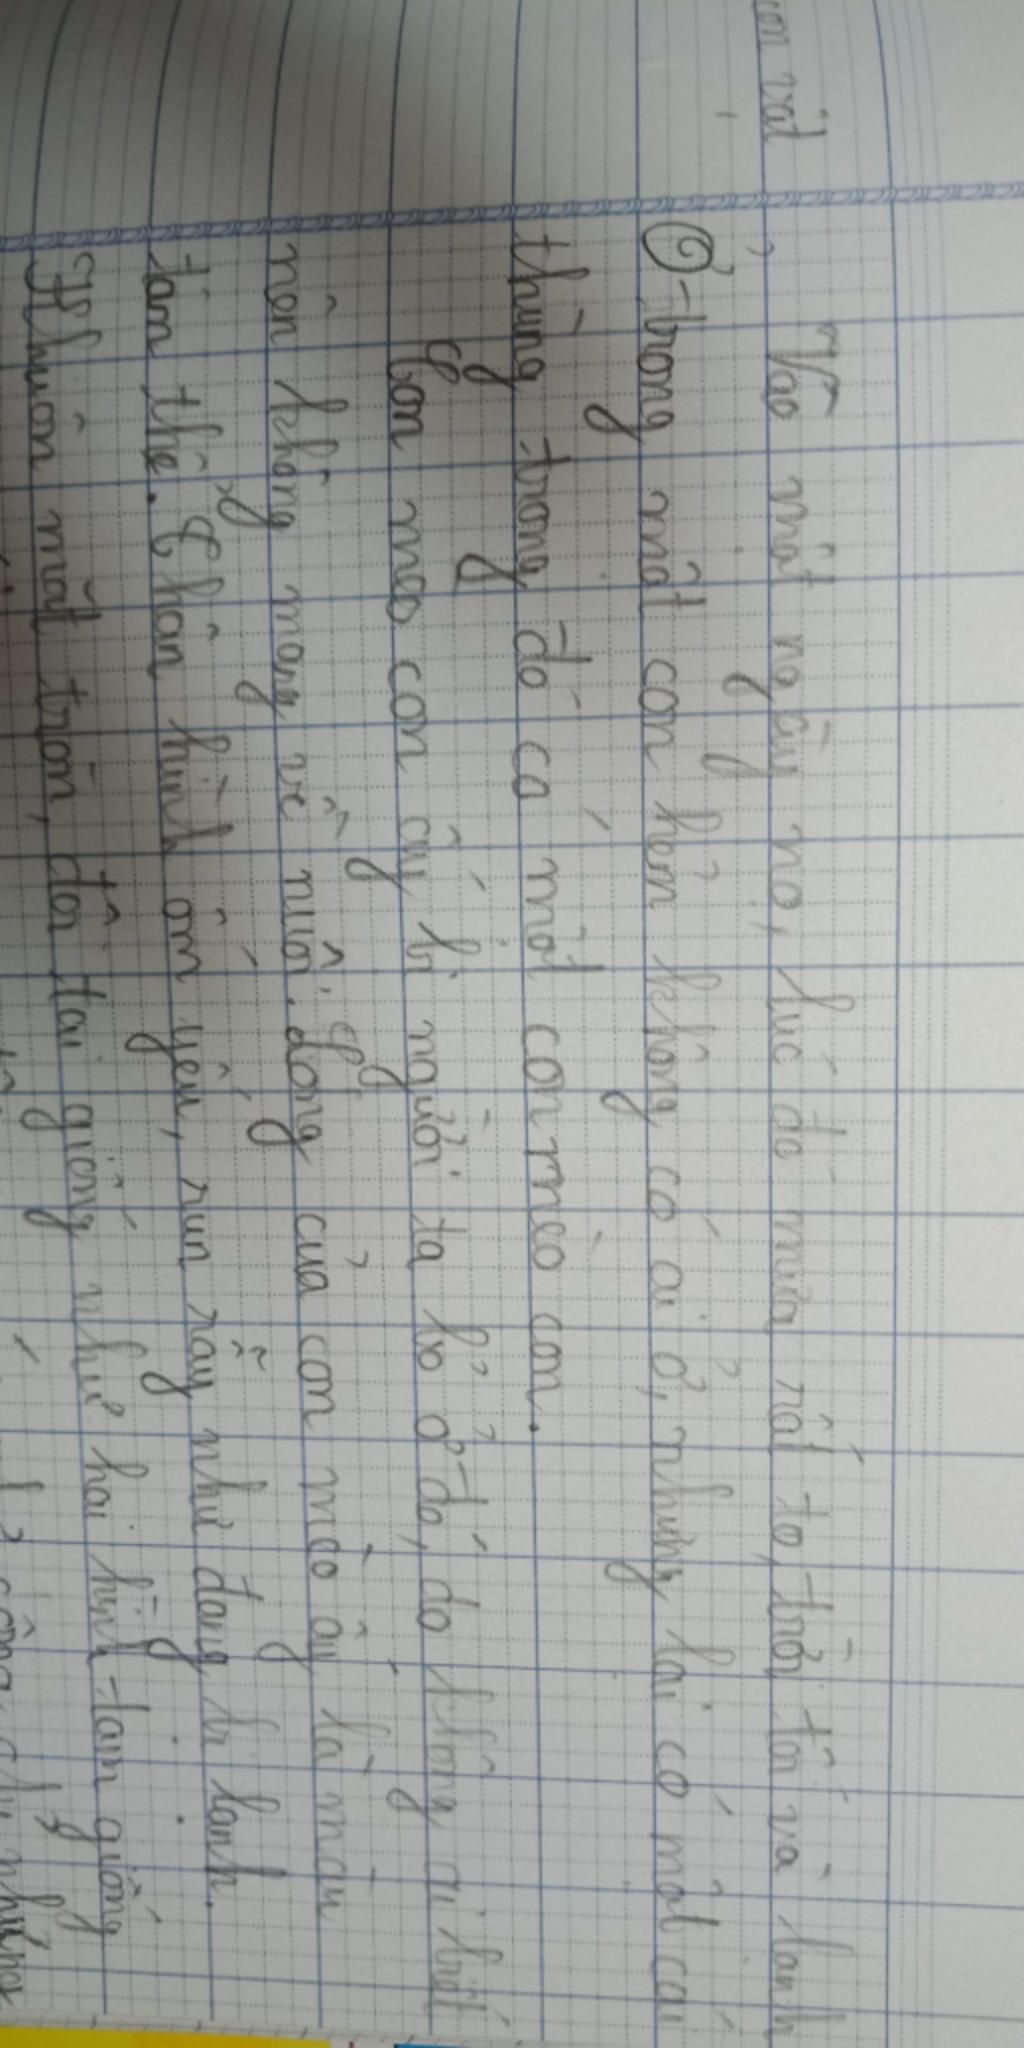 con vật
Vào một ngày nọ, lúc đó mưa rất to, trời tối và lạnh
Ở trong một con hẻm không có ai ở, nhưng lại có một cái
thùng trong đó có một con mèo con.
Con mèo con ấy bị người ta bỏ ở đó, do không ai biết
nên không mang về nuôi. Lông của con mèo ấy là màu
tam thể. Thân hình ốm yếu, run rẩy như đang bị lạnh.
Khuôn mặt tròn, đôi tai giống như hai hình tam giống